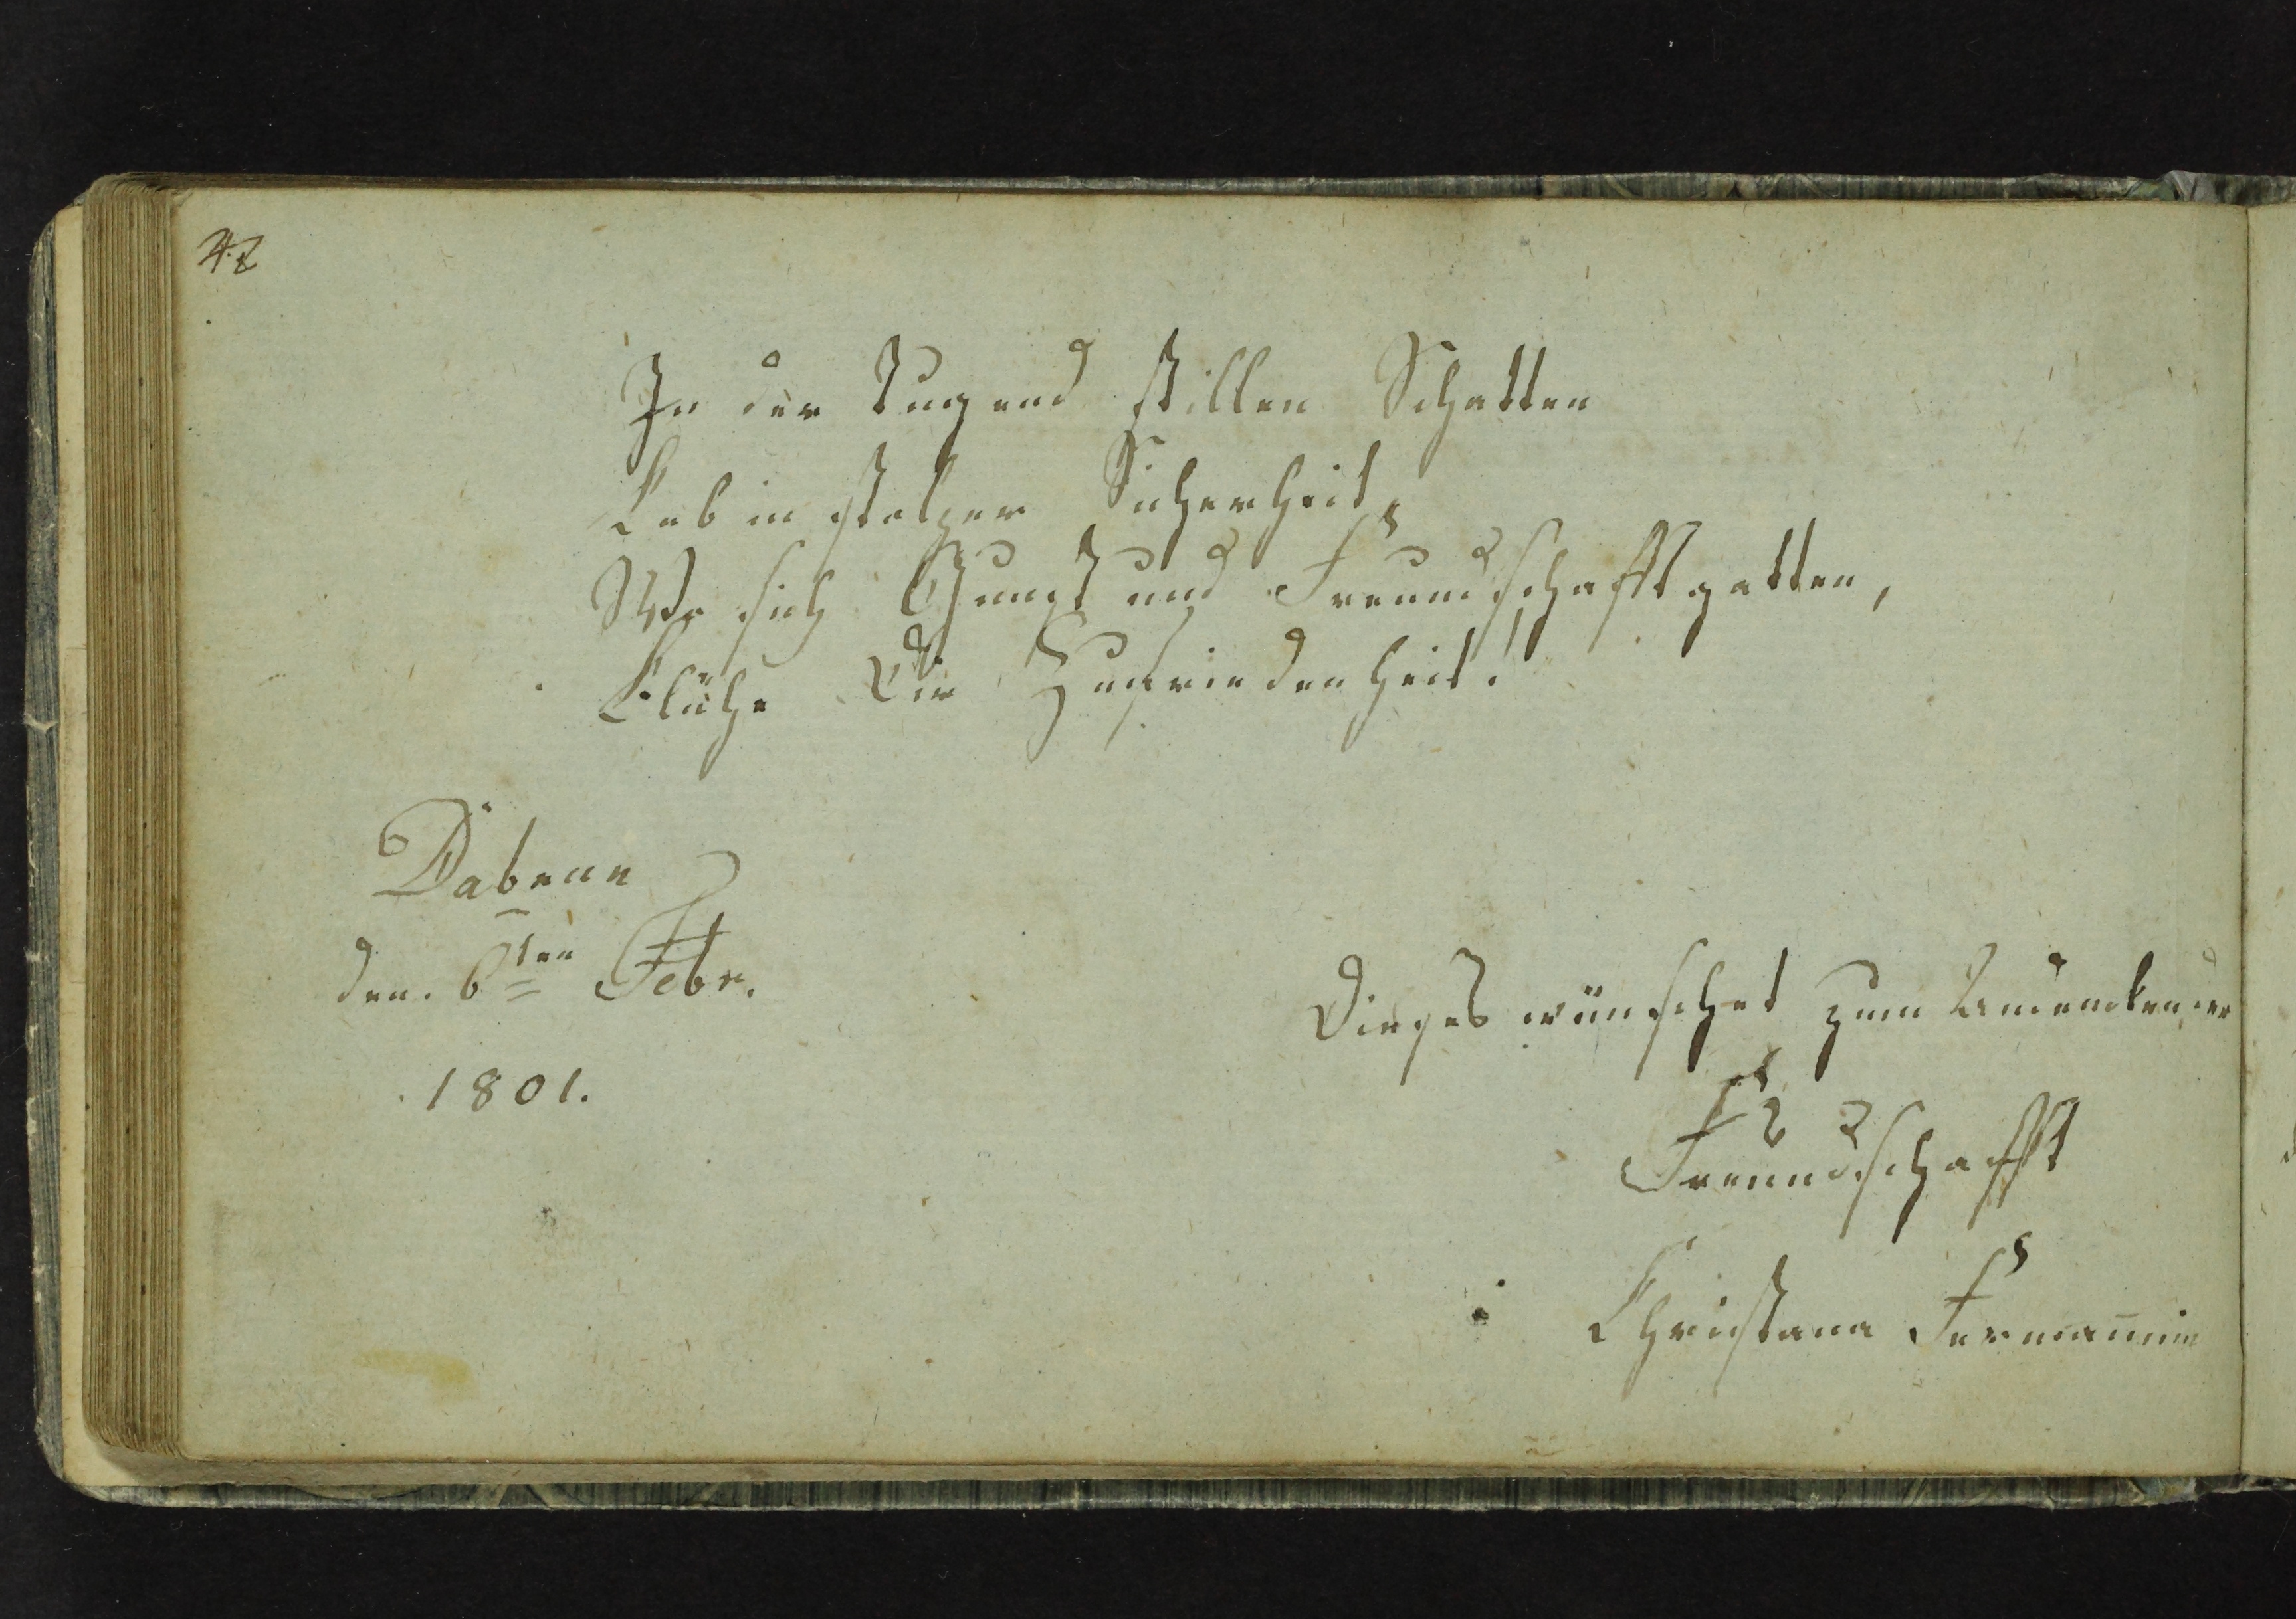 42
In der Tugend stillen Schatten
Leb in stolzer Sicherheit,
Wo sich Gunst und Freundschafft gatten,
Blühe Dir Zufriedenheit!
den 6ten Febr.
1801.
Dieses wünschet zum Andencken der
Freundschafft
Christana